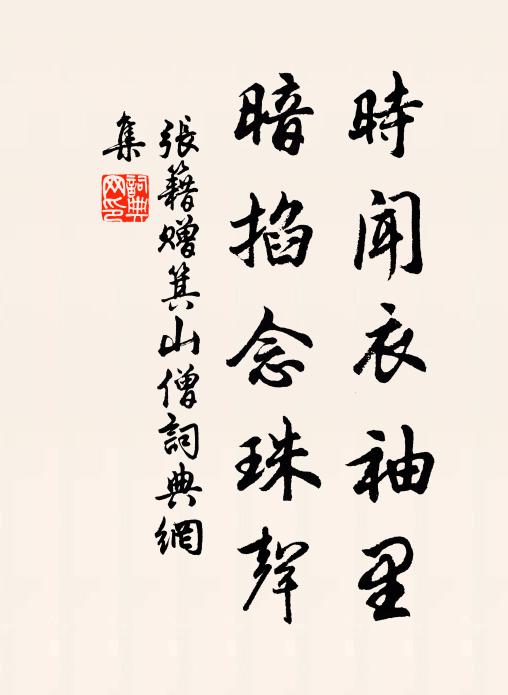 時闻衣袖里
暗掐念珠聲
張籍赠箕山僧詞典網
集
詞典
网印